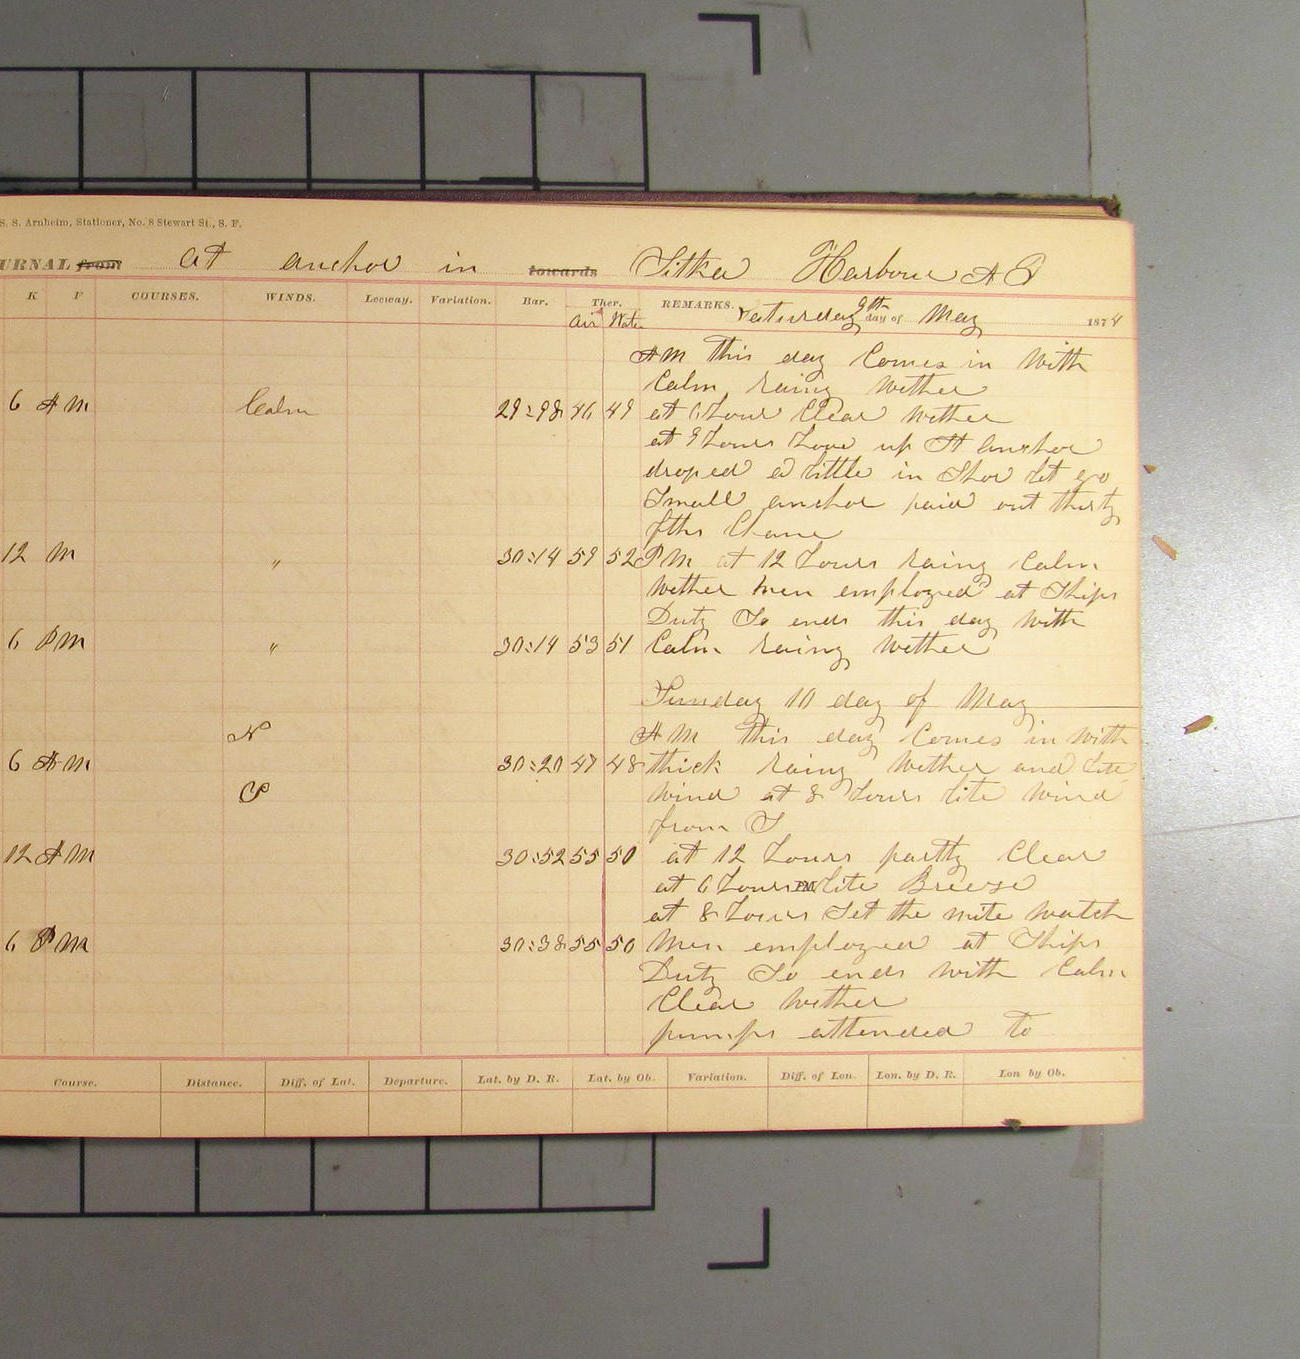 S. S. Arnheim, Stationer, No. 8 Stewart St., S. F.
URNAL from at anchor in towards Sitka Harbour A T
K F COURSES. WINDS. Leeway. Variation. Bar. Ther. REMARKS. Saturday 9th day of May 1874
Air Water
AM this day Comes in With
Calm rainy wether
6 AM Calm 29:98 46 49 at 6 hour Clear wether
at 9 hours hove up St anchor
droped a little in Shor let go
Small anchor paid out thirty
fths Chane
12 M " 30:14 59 52 PM at 12 hours rainy Calm
wether Men employed at Ships
Duty So ends this day with
6 PM " 30:14 53 51 Calm rainy wether
Sunday 10 day of May
N AM this day Comes in with
6 AM 30:20 47 48 thick rainy wether and lite
S wind at 8 hours lite wind
from S
12 AM 30:52 55 50 at 12 hours partly Clear
at 6 hours PM lite Breeze
at 8 hours Set the nite watch
6 PM 30:38 55 50 Men employed at Ships
Duty So ends with Calm
Clear wether
pumps attended to
Course. Distance. Diff. of Lat. Departure. Lat. by D. R. Lat. by Ob. Variation. Diff. of Lon. Lon. by D. R. Lon by Ob.